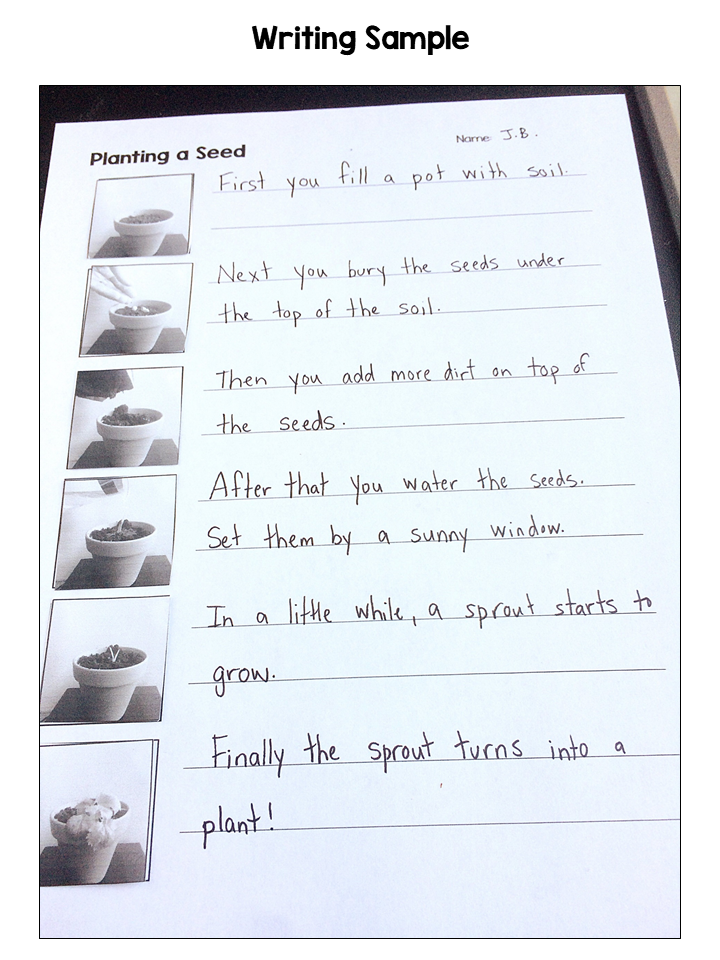 Writing Sample
Planting a Seed
Name: J.B.
First you fill a pot with soil.
Next you bury the seeds under
the top of the soil.
Then you add more dirt on top of
the seeds.
After that you water the seeds.
Set them by a sunny window.
In a little while, a sprout starts to
grow.
Finally the sprout turns into a
plant!